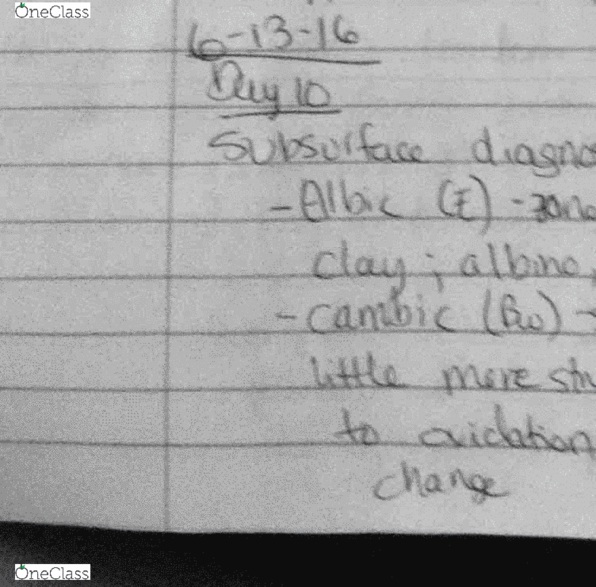 OneClass
6-13-16
Day 10
Subsurface diagnos
- Albic (E) - zone
clay ; albino,
- cambic (Bw) -
little more stru
to oxidation
change
OneClass